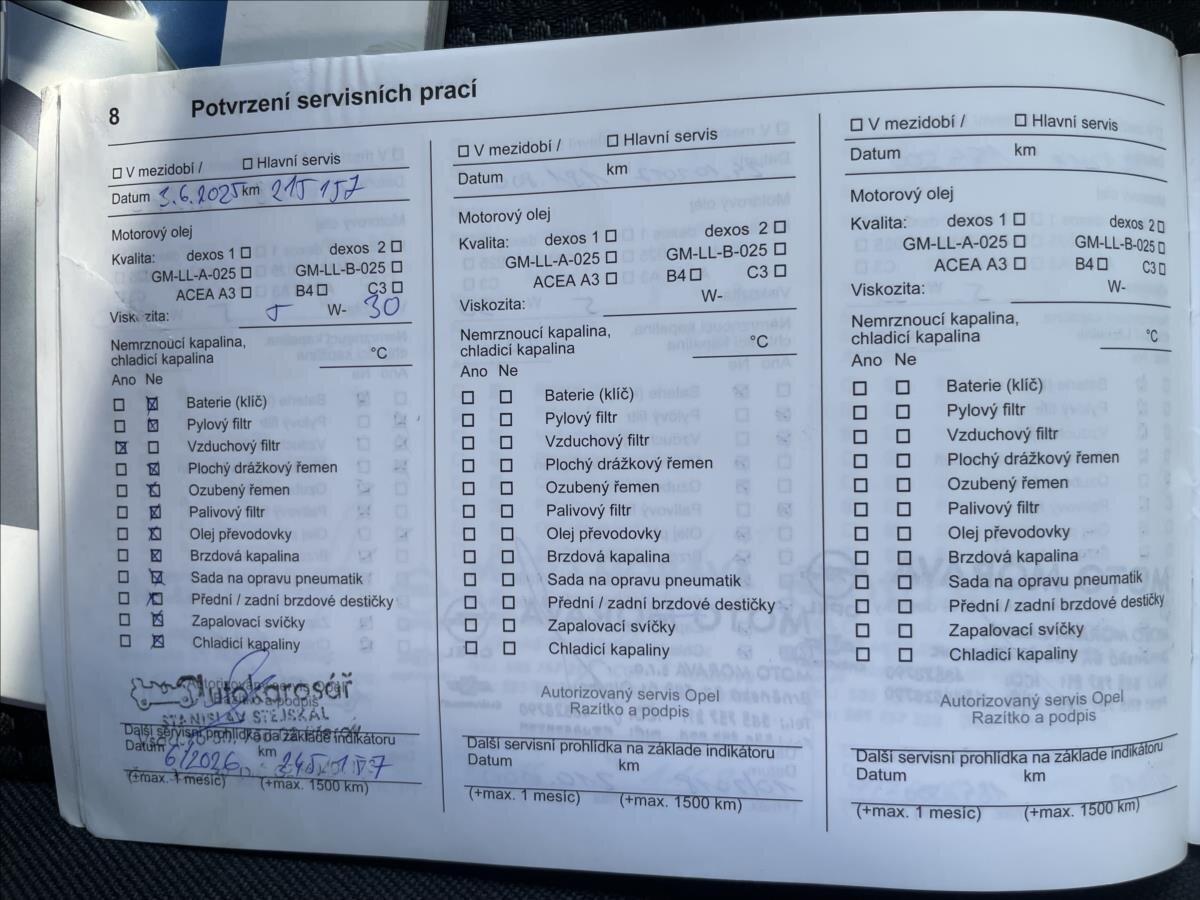 8 Potvrzení servisních prací
V mezidobí / Hlavní servis
Datum 3.6.2025 km 215 157
Motorový olej
Kvalita: dexos 1 dexos 2
GM-LL-A-025 GM-LL-B-025
ACEA A3 B4 C3
Viskozita: 5 W- 30
Nemrznoucí kapalina,
chladicí kapalina °C
Ano Ne
Baterie (klíč)
Pylový filtr
Vzduchový filtr
Plochý drážkový řemen
Ozubený řemen
Palivový filtr
Olej převodovky
Brzdová kapalina
Sada na opravu pneumatik
Přední / zadní brzdové destičky
Zapalovací svíčky
Chladicí kapaliny
Autokarosář
STANISLAV STEJSKAL
Další servisní prohlídka na základe indikátoru
Datum 6/2026 km 245 157
(±max. 1 mesíc) (+max. 1500 km)
V mezidobí / Hlavní servis
Datum km
Motorový olej
Kvalita: dexos 1 dexos 2
GM-LL-A-025 GM-LL-B-025
ACEA A3 B4 C3
Viskozita: W-
Nemrznoucí kapalina,
chladicí kapalina °C
Ano Ne
Baterie (klíč)
Pylový filtr
Vzduchový filtr
Plochý drážkový řemen
Ozubený řemen
Palivový filtr
Olej převodovky
Brzdová kapalina
Sada na opravu pneumatik
Přední / zadní brzdové destičky
Zapalovací svíčky
Chladicí kapaliny
Autorizovaný servis Opel
Razítko a podpis
Další servisní prohlídka na základe indikátoru
Datum km
(+max. 1 mesíc) (+max. 1500 km)
V mezidobí / Hlavní servis
Datum km
Motorový olej
Kvalita: dexos 1 dexos 2
GM-LL-A-025 GM-LL-B-025
ACEA A3 B4 C3
Viskozita: W-
Nemrznoucí kapalina,
chladicí kapalina °C
Ano Ne
Baterie (klíč)
Pylový filtr
Vzduchový filtr
Plochý drážkový řemen
Ozubený řemen
Palivový filtr
Olej převodovky
Brzdová kapalina
Sada na opravu pneumatik
Přední / zadní brzdové destičky
Zapalovací svíčky
Chladicí kapaliny
Autorizovaný servis Opel
Razítko a podpis
Další servisní prohlídka na základe indikátoru
Datum km
(+max. 1 mesíc) (+max. 1500 km)